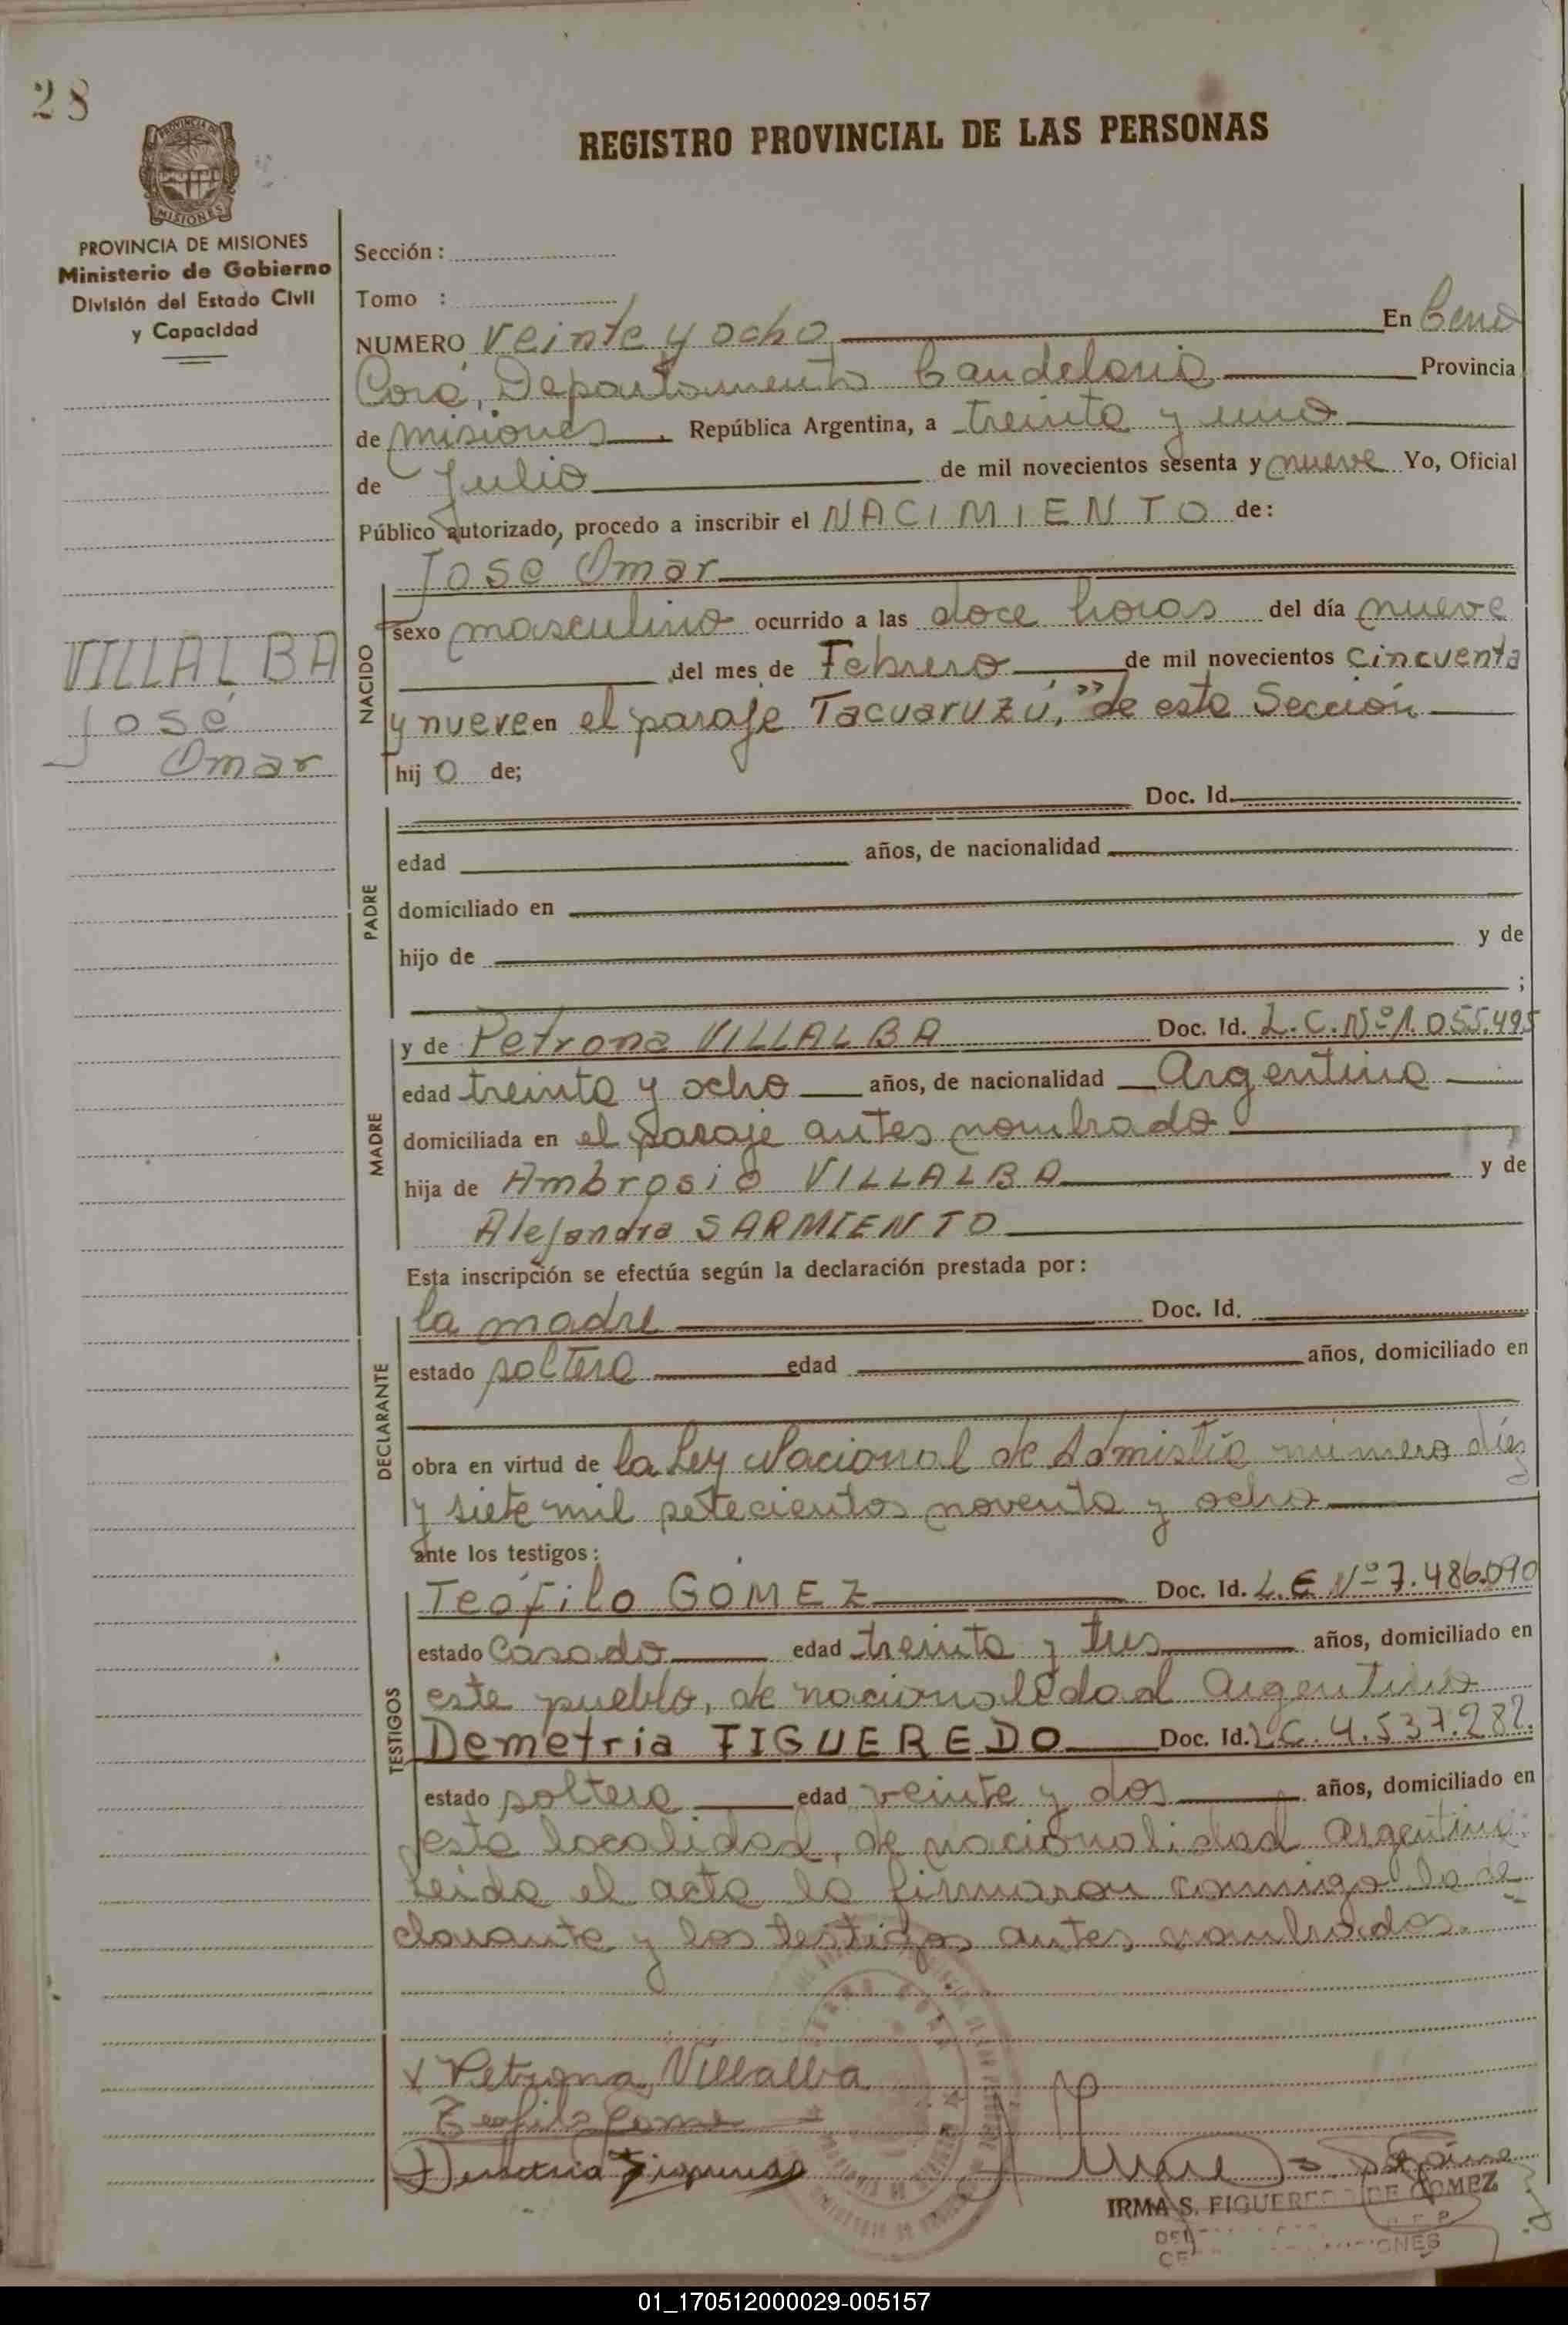 28
REGISTRO PROVINCIAL DE LAS PERSONAS
PROVINCIA DE MISIONES
PROVINCIA DE MISIONES
Ministerio de Gobierno
División del Estado Civil
y Capacidad
Sección :
Tomo :
NUMERO veinte y ocho En Cerro
Corá, Departamento Candelaria Provincia
de misiones República Argentina, a treinta y uno
de Julio de mil novecientos sesenta y nueve Yo, Oficial
Público autorizado, procedo a inscribir el NACIMIENTO de:
VILLALBA
José
Omar
NACIDO
José Omar
sexo masculino ocurrido a las doce horas del día nueve
del mes de Febrero de mil novecientos cincuenta
y nueve en el paraje Tacuaruzú," de esta Sección
hij o de;
PADRE
Doc. Id.
edad años, de nacionalidad
domiciliado en
hijo de y de
;
MADRE
y de Petrona VILLALBA Doc. Id. L.C.Nº1.055.495
edad treinta y ocho años, de nacionalidad Argentina
domiciliada en el paraje antes nombrado
hija de Ambrosio VILLALBA y de
Alejandra SARMIENTO
Esta inscripción se efectúa según la declaración prestada por:
DECLARANTE
la madre Doc. Id.
estado soltera edad años, domiciliado en
obra en virtud de la Ley Nacional de Admistía número diéz
y siete mil setecientos noventa y ocho
ante los testigos:
TESTIGOS
Teófilo GOMEZ Doc. Id. L.E Nº 7.486.090
estado Casado edad treinta y tres años, domiciliado en
este pueblo, de nacionalidad Argentina
Demetria FIGUEREDO Doc. Id. LC. 4.537.282.
estado soltera edad veinte y dos años, domiciliado en
esta localidad, de nacionalidad argentina
Leida el acta la firmaron conmigo la de
clarante y los testigos antes nombrados.
x Petrona Villalba
Teofilo Gomez
Demetria Figueredo
IRMA S. FIGUEREDO DE GOMEZ
01_170512000029-005157